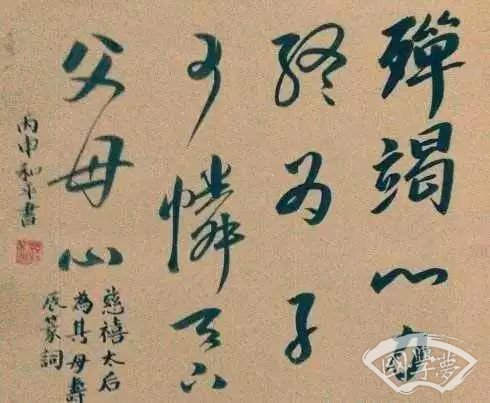 殫竭心力
終为子
可憐天下
父母心
慈禧太后
為其母壽
辰篆詞
丙申和平書
國學夢